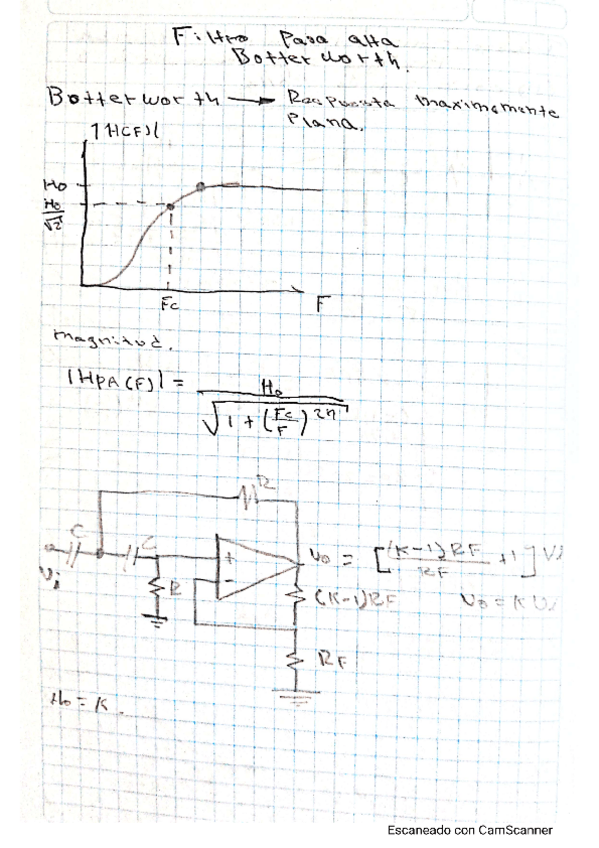 Filtro Pasa alta
Botterworth.
Botterworth → Respuesta maximamente
Plana.
|H(F)|
Ho
Ho/√2
Fc
F
magnitud.
|HPA(F)| = Ho / √(1 + (Fc/F)^2n)
R
C
C
Vi
R
+
-
Vo = [(K-1)RF / RF + 1] Vi
(K-1)RF
Vo = K Vi
RF
Ho = K.
Escaneado con CamScanner